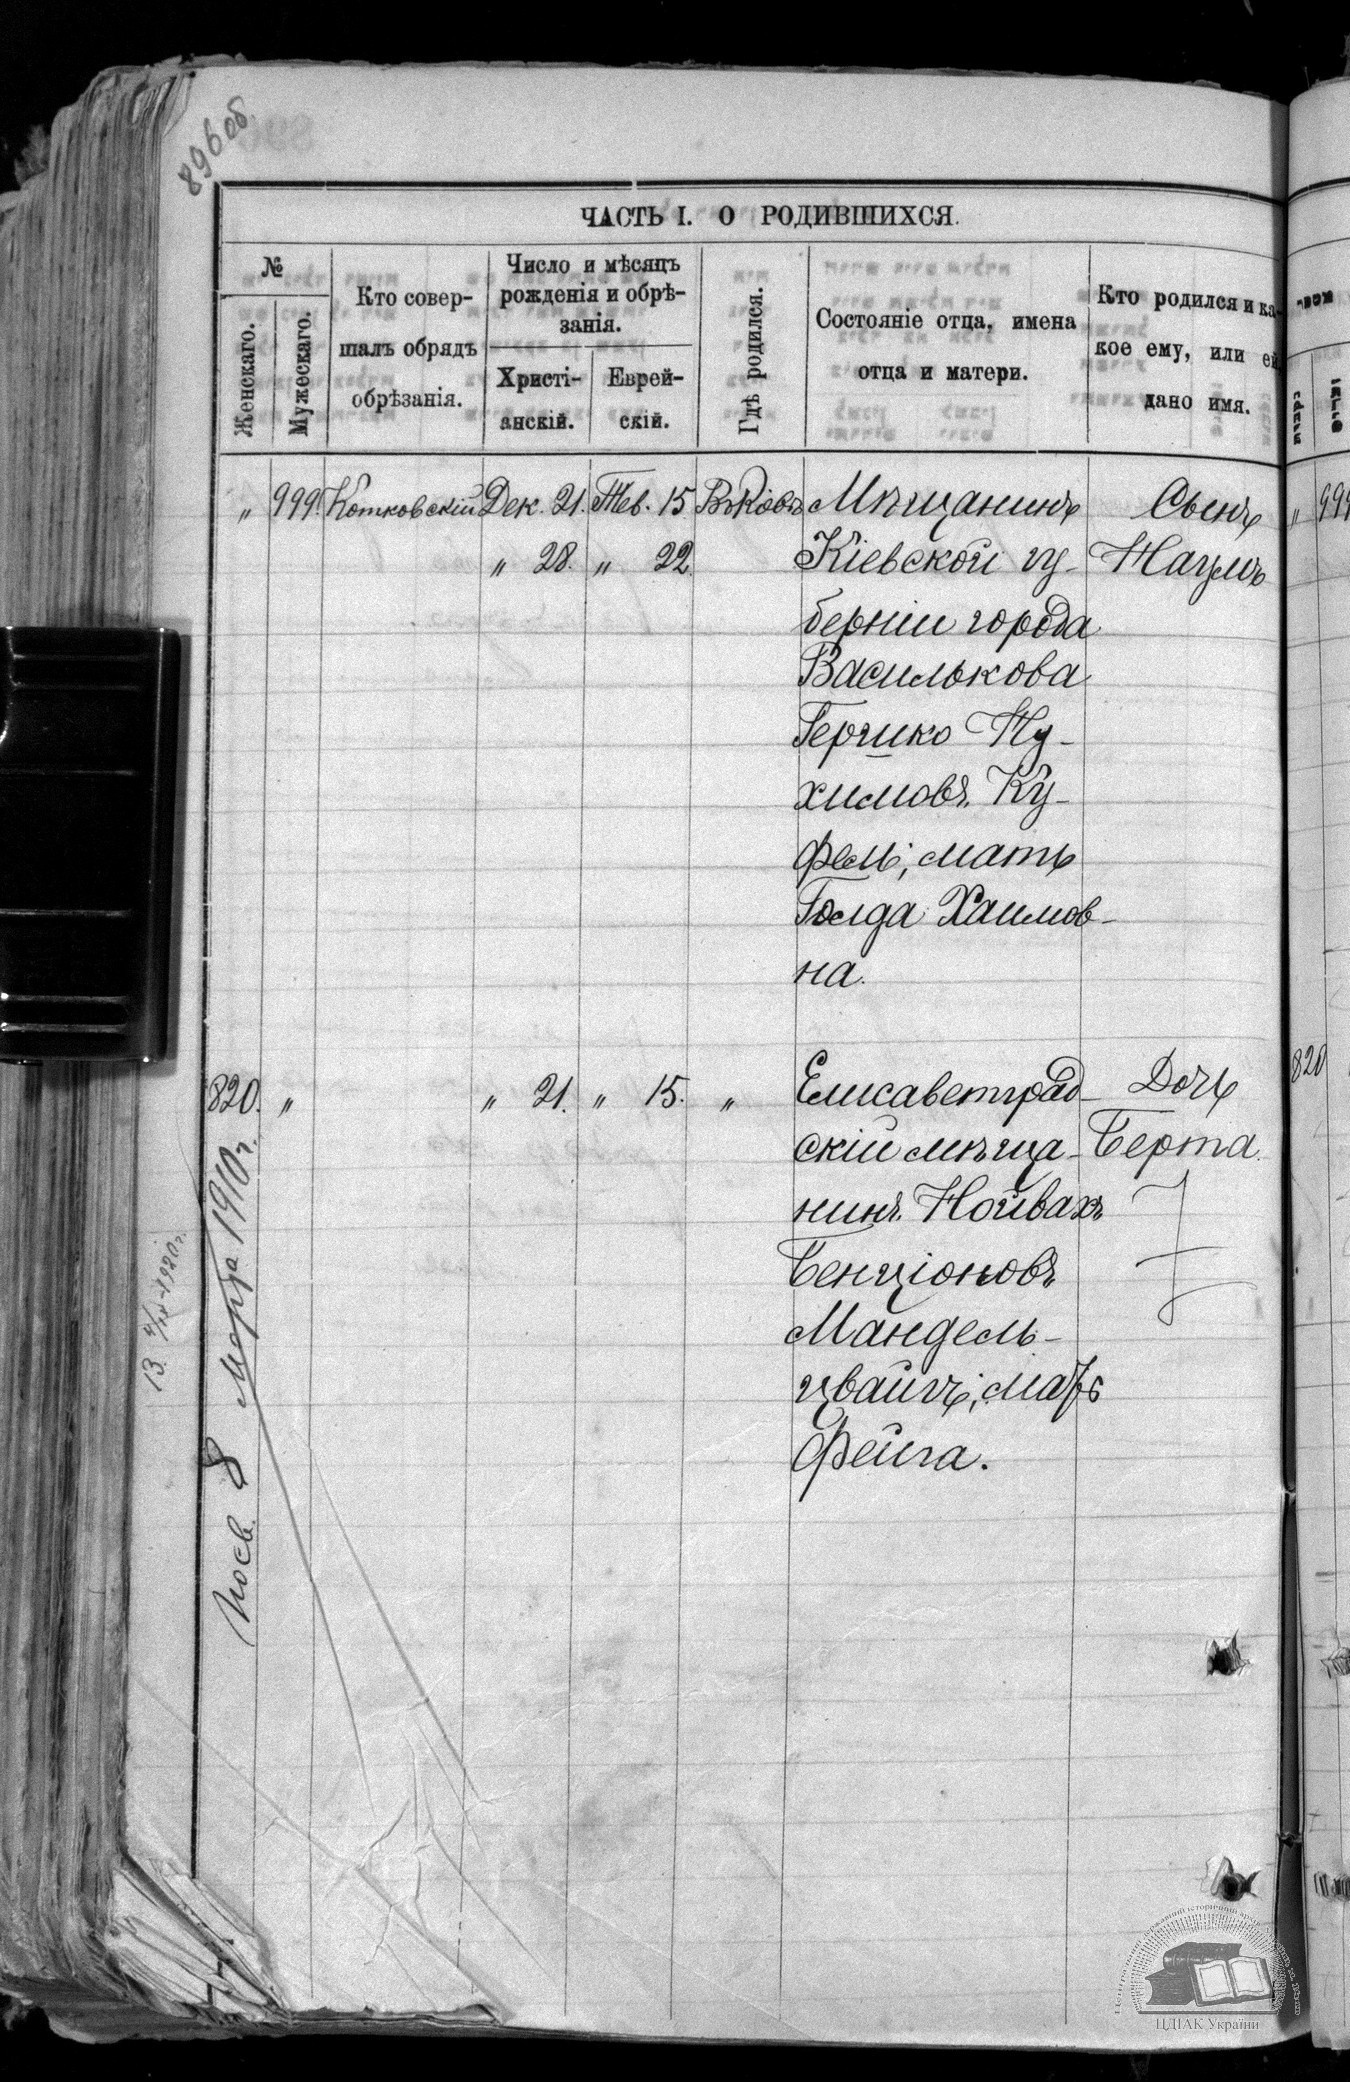 896 об.
ЧАСТЬ I. О РОДИВШИХСЯ.
№
Женскаго.
Мужескаго.
Кто совер-
шалъ обрядъ
обрѣзанія.
Число и мѣсяцъ
рожденія и обрѣ-
занія.
Христі-
анскій.
Еврей-
скій.
Гдѣ родился.
Состояніе отца, имена
отца и матери.
Кто родился и ка-
кое ему, или ей
дано имя.
„ 999. Котковскій Дек. 21. Тев. 15 Въ Кіевѣ Мѣщанинъ Сынъ
„ 28. „ 22. Кіевской гу- Наумъ
берніи города
Василькова
Гершко Ну-
химовъ Ку-
фель, мать
Голда Хаимов-
на.
820. „ „ 21. „ 15. „ Елисаветград- Дочь
скій мѣща- Берта.
нинъ Нойвахъ
Бенціоновъ
Мандель-
цвайгъ, мать
Фейга.
8 Марта 1910 г.
999
820
ЦДІАК України